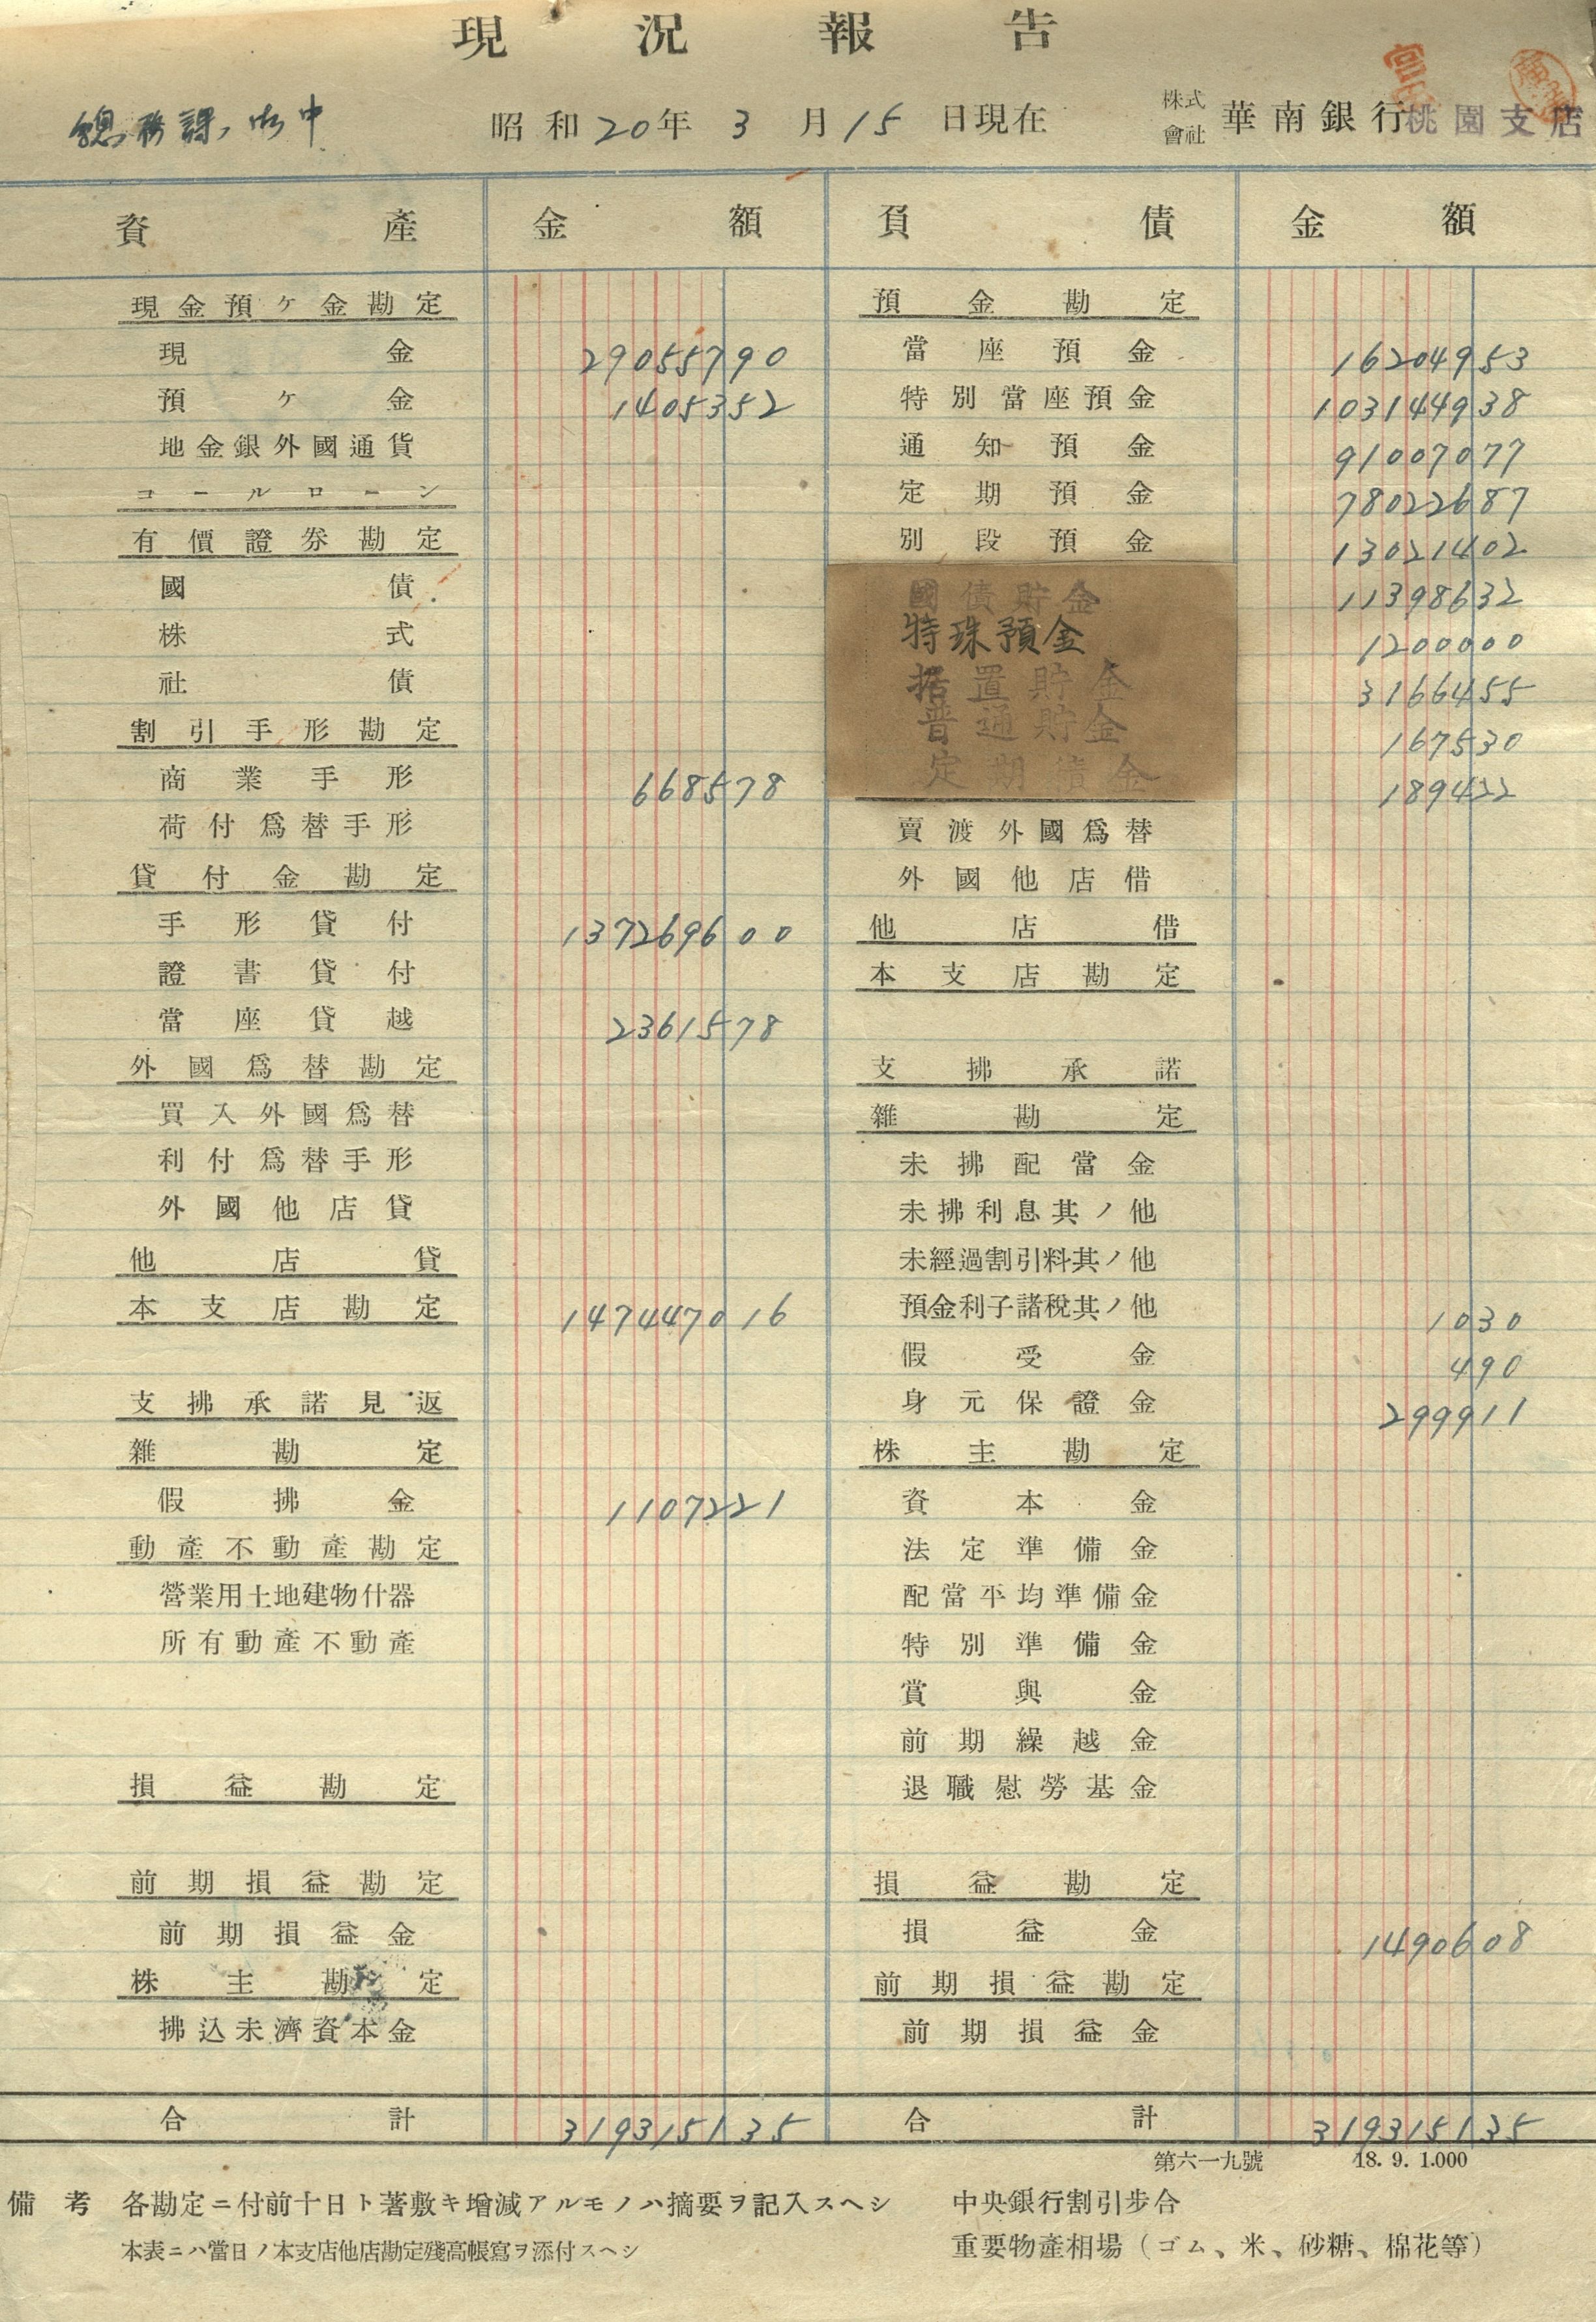 現況報告
總務課御中 昭和20年3月15日現在 株式會社 華南銀行桃園支店
資產 金額 負債 金額
現金預ヶ金勘定 預金勘定
現金 29055790 當座預金 16204953
預ヶ金 1405352 特別當座預金 103144938
地金銀外國通貨 通知預金 91007077
コールローン 定期預金 78022687
有價證券勘定 別段預金 13021402
國債 國債貯金 11398632
株式 特珠預金 1200000
社債 据置貯金 3166455
割引手形勘定 普通貯金 167530
商業手形 668578 定期積金 189422
荷付爲替手形 賣渡外國爲替
貸付金勘定 外國他店借
手形貸付 137269600 他店借
證書貸付 本支店勘定
當座貸越 2361578
外國爲替勘定 支拂承諾
買入外國爲替 雜勘定
利付爲替手形 未拂配當金
外國他店貸 未拂利息其ノ他
他店貸 未經過割引料其ノ他
本支店勘定 147447016 預金利子諸稅其ノ他 1030
假受金 490
支拂承諾見返 身元保證金 299911
雜勘定 株主勘定
假拂金 1107221 資本金
動產不動產勘定 法定準備金
營業用土地建物什器 配當平均準備金
所有動產不動產 特別準備金
賞與金
前期繰越金
損益勘定 退職慰勞基金
前期損益勘定 損益勘定
前期損益金 損益金 1490608
株主勘定 前期損益勘定
拂込未濟資本金 前期損益金
合計 319315135 合計 319315135
第六一九號 18. 9. 1.000
備考 各勘定ニ付前十日ト著敷キ增減アルモノハ摘要ヲ記入スヘシ 中央銀行割引步合
本表ニハ當日ノ本支店他店勘定殘高帳寫ヲ添付スヘシ 重要物產相場（ゴム、米、砂糖、棉花等）